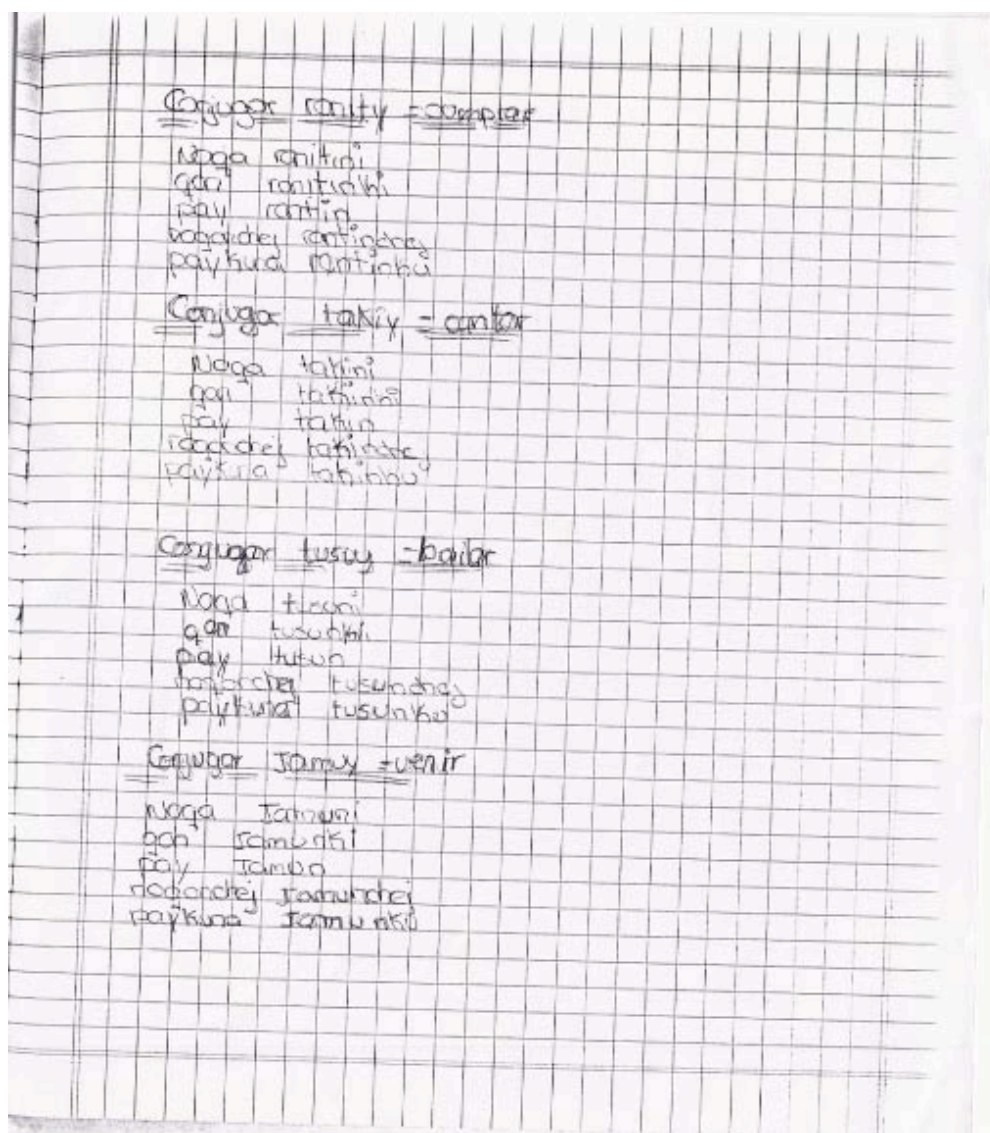 Conjugar ranity = comprar
Noqa ranitini
qan ranitinki
pay rantin
noqanchej rantinchej
paykuna rantinku
Conjugar takiy = cantar
Noqa takini
qan takinni
pay takin
noqanchej takinchej
paykuna takinku
Conjugar tusuy = bailar
Noqa
qan tusunki
pay tutun
noqanchej tusunchej
paykuna tusunku
Conjugar Jamuy = venir
Noqa Jamuni
qan Jamunki
pay Jamun
noqanchej Jamunchej
paykuna Jamunku